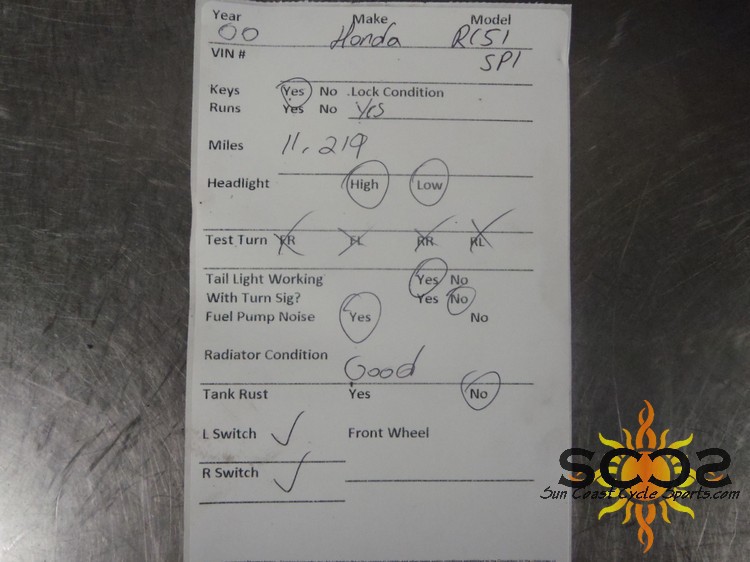 Year Make Model
00 Honda RC51
VIN # SP1
Keys Yes No .Lock Condition
Runs Yes No Yes
Miles 11,219
Headlight High Low
Test Turn FR FL RR RL
Tail Light Working Yes No
With Turn Sig? Yes No
Fuel Pump Noise Yes No
Radiator Condition Good
Tank Rust Yes No
L Switch ✓ Front Wheel
R Switch ✓
SCCS
Sun Coast Cycle Sports.com